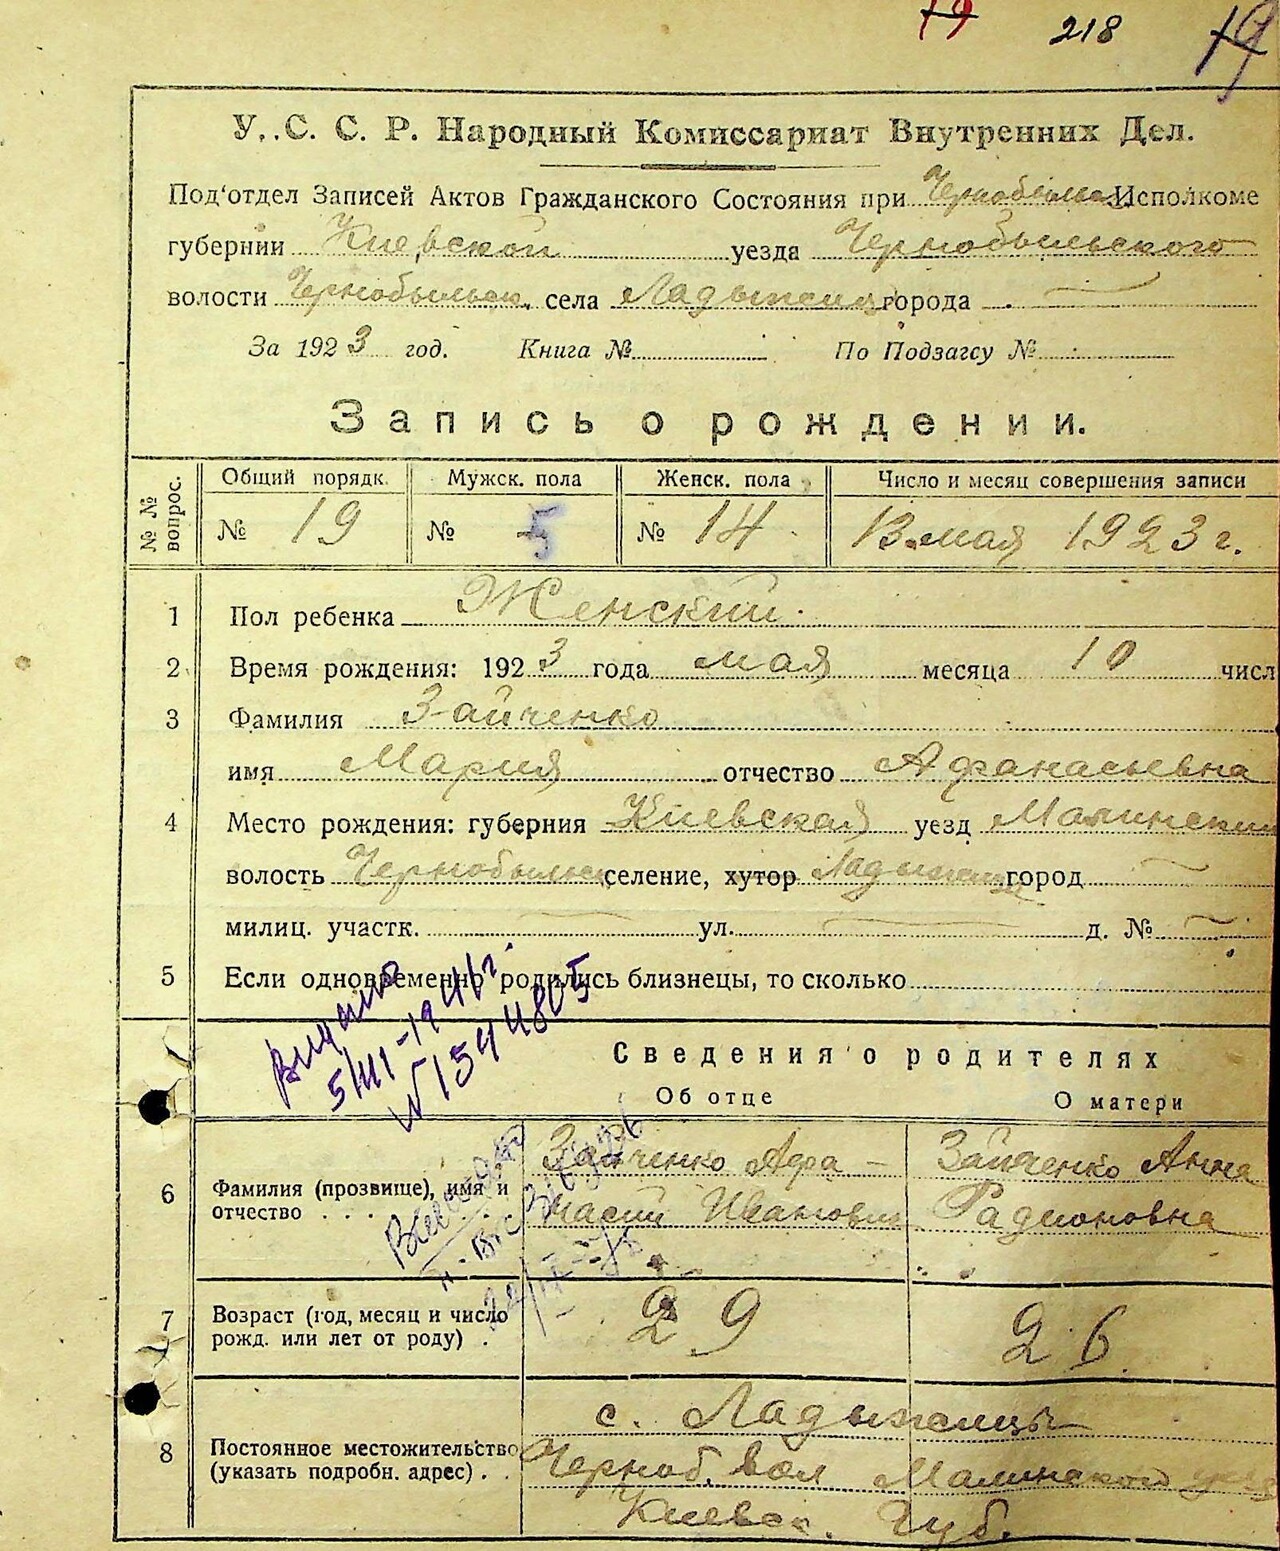 19 218 19
У. С. С. Р. Народный Комиссариат Внутренних Дел.
Под'отдел Записей Актов Гражданского Состояния при Чернобыльск. Исполкоме
губернии Киевской уезда Чернобыльского
волости Чернобыльск. села Ладыжичи города
За 1923 год. Книга № По Подзагсу №
Запись о рождении.
№ № вопрос. Общий порядк. Мужск. пола Женск. пола Число и месяц совершения записи
№ 19 № 5 № 14 13 мая 1923 г.
1 Пол ребенка Женский.
2 Время рождения: 1923 года мая месяца 10 числ
3 Фамилия Зайченко
имя Мария отчество Афанасьевна
4 Место рождения: губерния Киевская уезд Малинский
волость Чернобыльск. селение, хутор Ладыжичи город
милиц. участк. ул. д. №
5 Если одновременно родились близнецы, то сколько
Видано
5/III-1946г.
№1544805
Сведения о родителях
Об отце О матери
6 Фамилия (прозвище), имя и отчество . . . .
Зайченко Афа-
насий Иванович
Зайченко Анна
Радионовна
7 Возраст (год, месяц и число рожд. или лет от роду) .
29 26
8 Постоянное местожительство (указать подробн. адрес) . .
с. Ладыжичи
Черноб. вол Малинского уезд
Киевск. Губ.